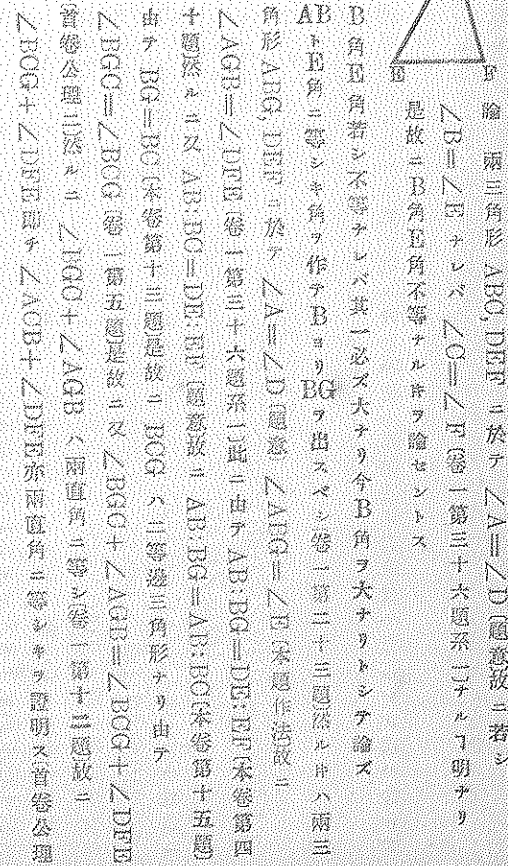 E F
論 兩三角形 ABC, DEF ニ於テ ∠A=∠D〔題意故ニ若シ
∠B=∠E ナレバ ∠C=∠F〔卷一第三十六題系二〕ナルヿ明ナリ
是故ニB角E角不等ナル時ヲ論セントス
B角E角若シ不等ナレバ其一必ズ大ナリ今B角ヲ大ナリトシテ論ズ
ABトE角ニ等シキ角ヲ作テBヨリBGヲ出スベシ卷一第二十三題然ル時ハ兩三
角形 ABG, DEF ニ於テ ∠A=∠D〔題意 ∠ABG=∠E〔本題作法故ニ
∠AGB=∠DFE〔卷一第三十六題系二〕此ニ由テ AB:BG=DE:EF〔本卷第四
十題然ルニ又 AB:BC=DE:EF〔題意故ニ AB:BG=AB:BC〔本卷第十五題〕
由テ BG=BC〔本卷第十三題是故ニ BCG ハ二等邊三角形ナリ由テ
∠BGC=∠BCG〔卷一第五題〕是故ニ又 ∠BGC+∠AGB=∠BCG+∠DFE
〔首卷公理二然ルニ ∠BGC+∠AGB ハ兩直角ニ等シ〔卷一第十三題故ニ
∠BCG+∠DFE 即チ ∠ACB+∠DFE 亦兩直角ニ等シキヲ證明ス〔首卷公理